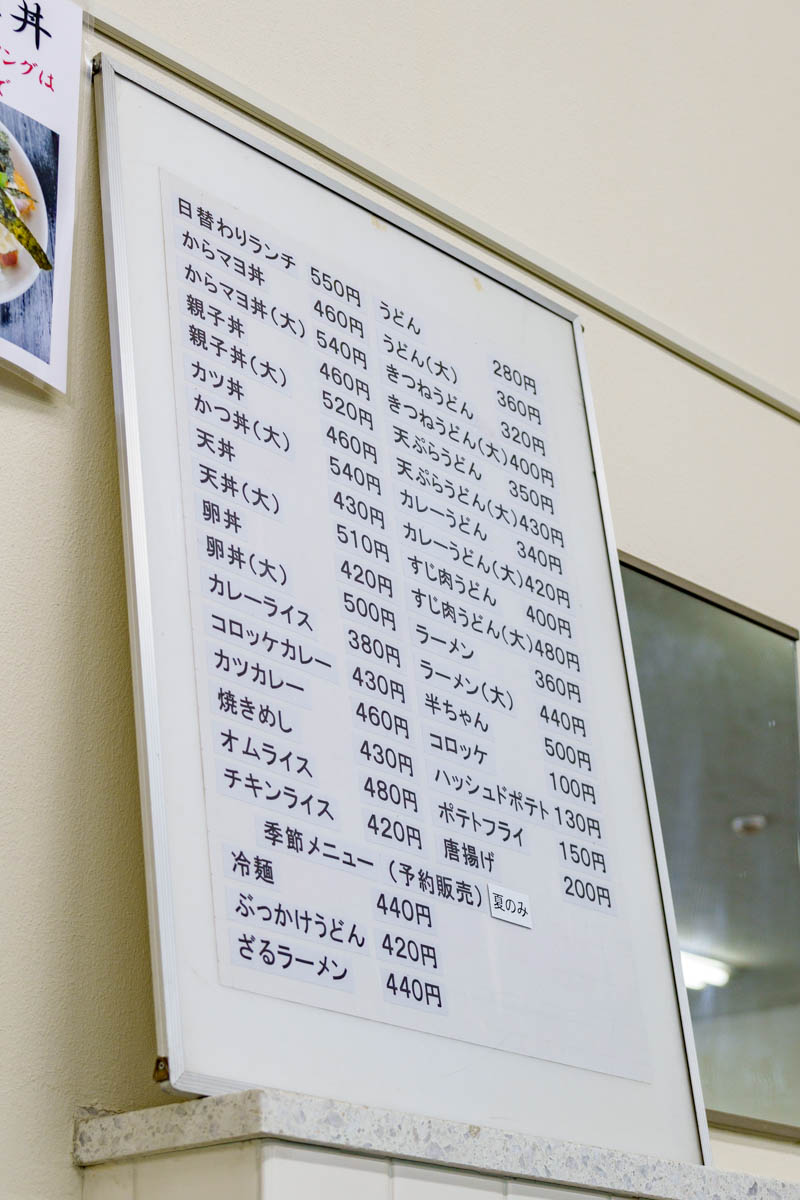 丼
ングは
ズ
日替わりランチ 550円
からマヨ丼 460円
からマヨ丼(大) 540円
親子丼 460円
親子丼(大) 520円
カツ丼 460円
かつ丼(大) 540円
天丼 430円
天丼(大) 510円
卵丼 420円
卵丼(大) 500円
カレーライス 380円
コロッケカレー 430円
カツカレー 460円
焼きめし 430円
オムライス 480円
チキンライス 420円
うどん 280円
うどん(大) 360円
きつねうどん 320円
きつねうどん(大) 400円
天ぷらうどん 350円
天ぷらうどん(大) 430円
カレーうどん 340円
カレーうどん(大) 420円
すじ肉うどん 400円
すじ肉うどん(大) 480円
ラーメン 360円
ラーメン(大) 440円
半ちゃん 500円
コロッケ 100円
ハッシュドポテト 130円
ポテトフライ 150円
唐揚げ 200円
季節メニュー (予約販売) 夏のみ
冷麺 440円
ぶっかけうどん 420円
ざるラーメン 440円